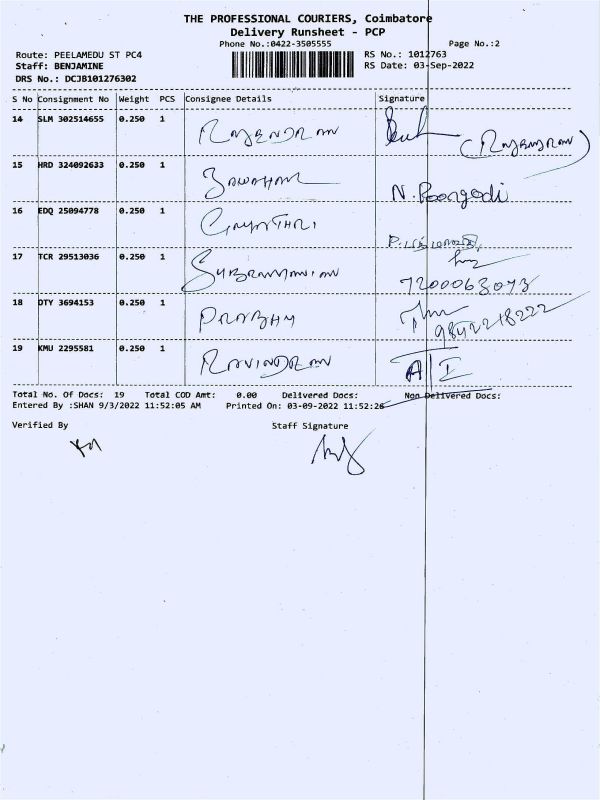 THE PROFESSIONAL COURIERS, Coimbatore
Delivery Runsheet - PCP
Phone No.:0422-3505555 Page No.:2
Route: PEELAMEDU ST PC4 RS No.: 1012763
Staff: BENJAMINE RS Date: 03-Sep-2022
DRS No.: DCJB101276302
S No Consignment No Weight PCS Consignee Details Signature
14 SLM 302514655 0.250 1 RAJENDRAN (RAJENDRAN)
15 HRD 324092633 0.250 1 JAWAHAR N. Poongodi
16 EDQ 25094778 0.250 1 GAYATHRI
17 TCR 29513036 0.250 1 SUBRAMANIAN 7200063073
18 DTY 3694153 0.250 1 PRABHU 9842218222
19 KMU 2295581 0.250 1 RAVINDRAN
Total No. Of Docs: 19 Total COD Amt: 0.00 Delivered Docs: Non Delivered Docs:
Entered By :SHAN 9/3/2022 11:52:05 AM Printed On: 03-09-2022 11:52:26
Verified By Staff Signature